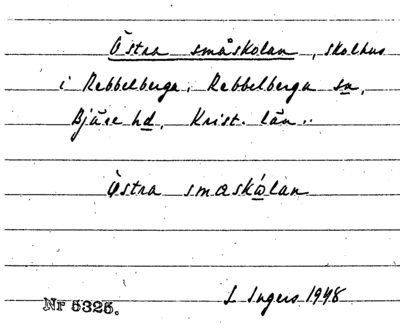 Östra småskolan, skolhus
i Rebbelberga, Rebbelberga sn,
Bjäre hd, Krist. län..
Östra smaskólan
Nr 5325.
S Ingers 1948